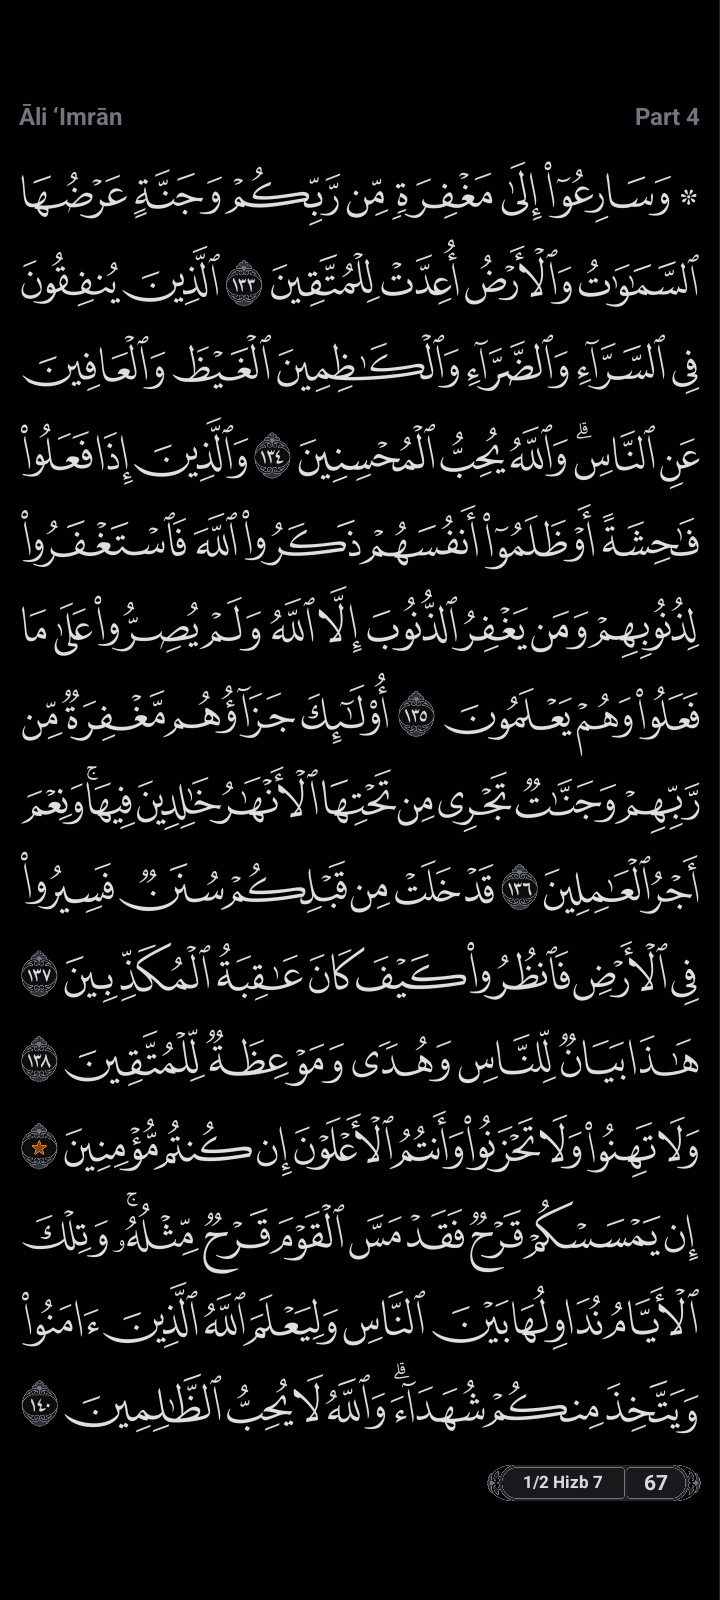 Āli ‘Imrān
Part 4
۞ وَسَارِعُوٓا۟ إِلَىٰ مَغْفِرَةٍ مِّن رَّبِّكُمْ وَجَنَّةٍ عَرْضُهَا
ٱلسَّمَـٰوَٰتُ وَٱلْأَرْضُ أُعِدَّتْ لِلْمُتَّقِينَ ١٣٣ ٱلَّذِينَ يُنفِقُونَ
فِى ٱلسَّرَّآءِ وَٱلضَّرَّآءِ وَٱلْكَـٰظِمِينَ ٱلْغَيْظَ وَٱلْعَافِينَ
عَنِ ٱلنَّاسِ ۗ وَٱللَّهُ يُحِبُّ ٱلْمُحْسِنِينَ ١٣٤ وَٱلَّذِينَ إِذَا فَعَلُوا۟
فَـٰحِشَةً أَوْ ظَلَمُوٓا۟ أَنفُسَهُمْ ذَكَرُوا۟ ٱللَّهَ فَٱسْتَغْفَرُوا۟
لِذُنُوبِهِمْ وَمَن يَغْفِرُ ٱلذُّنُوبَ إِلَّا ٱللَّهُ وَلَمْ يُصِرُّوا۟ عَلَىٰ مَا
فَعَلُوا۟ وَهُمْ يَعْلَمُونَ ١٣٥ أُو۟لَـٰٓئِكَ جَزَآؤُهُم مَّغْفِرَةٌ مِّن
رَّبِّهِمْ وَجَنَّـٰتٌ تَجْرِى مِن تَحْتِهَا ٱلْأَنْهَـٰرُ خَـٰلِدِينَ فِيهَا ۚ وَنِعْمَ
أَجْرُ ٱلْعَـٰمِلِينَ ١٣٦ قَدْ خَلَتْ مِن قَبْلِكُمْ سُنَنٌ فَسِيرُوا۟
فِى ٱلْأَرْضِ فَٱنظُرُوا۟ كَيْفَ كَانَ عَـٰقِبَةُ ٱلْمُكَذِّبِينَ ١٣٧
هَـٰذَا بَيَانٌ لِّلنَّاسِ وَهُدًى وَمَوْعِظَةٌ لِّلْمُتَّقِينَ ١٣٨
وَلَا تَهِنُوا۟ وَلَا تَحْزَنُوا۟ وَأَنتُمُ ٱلْأَعْلَوْنَ إِن كُنتُم مُّؤْمِنِينَ
إِن يَمْسَسْكُمْ قَرْحٌ فَقَدْ مَسَّ ٱلْقَوْمَ قَرْحٌ مِّثْلُهُۥ ۚ وَتِلْكَ
ٱلْأَيَّامُ نُدَاوِلُهَا بَيْنَ ٱلنَّاسِ وَلِيَعْلَمَ ٱللَّهُ ٱلَّذِينَ ءَامَنُوا۟
وَيَتَّخِذَ مِنكُمْ شُهَدَآءَ ۗ وَٱللَّهُ لَا يُحِبُّ ٱلظَّـٰلِمِينَ ١٤٠
1/2 Hizb 7
67